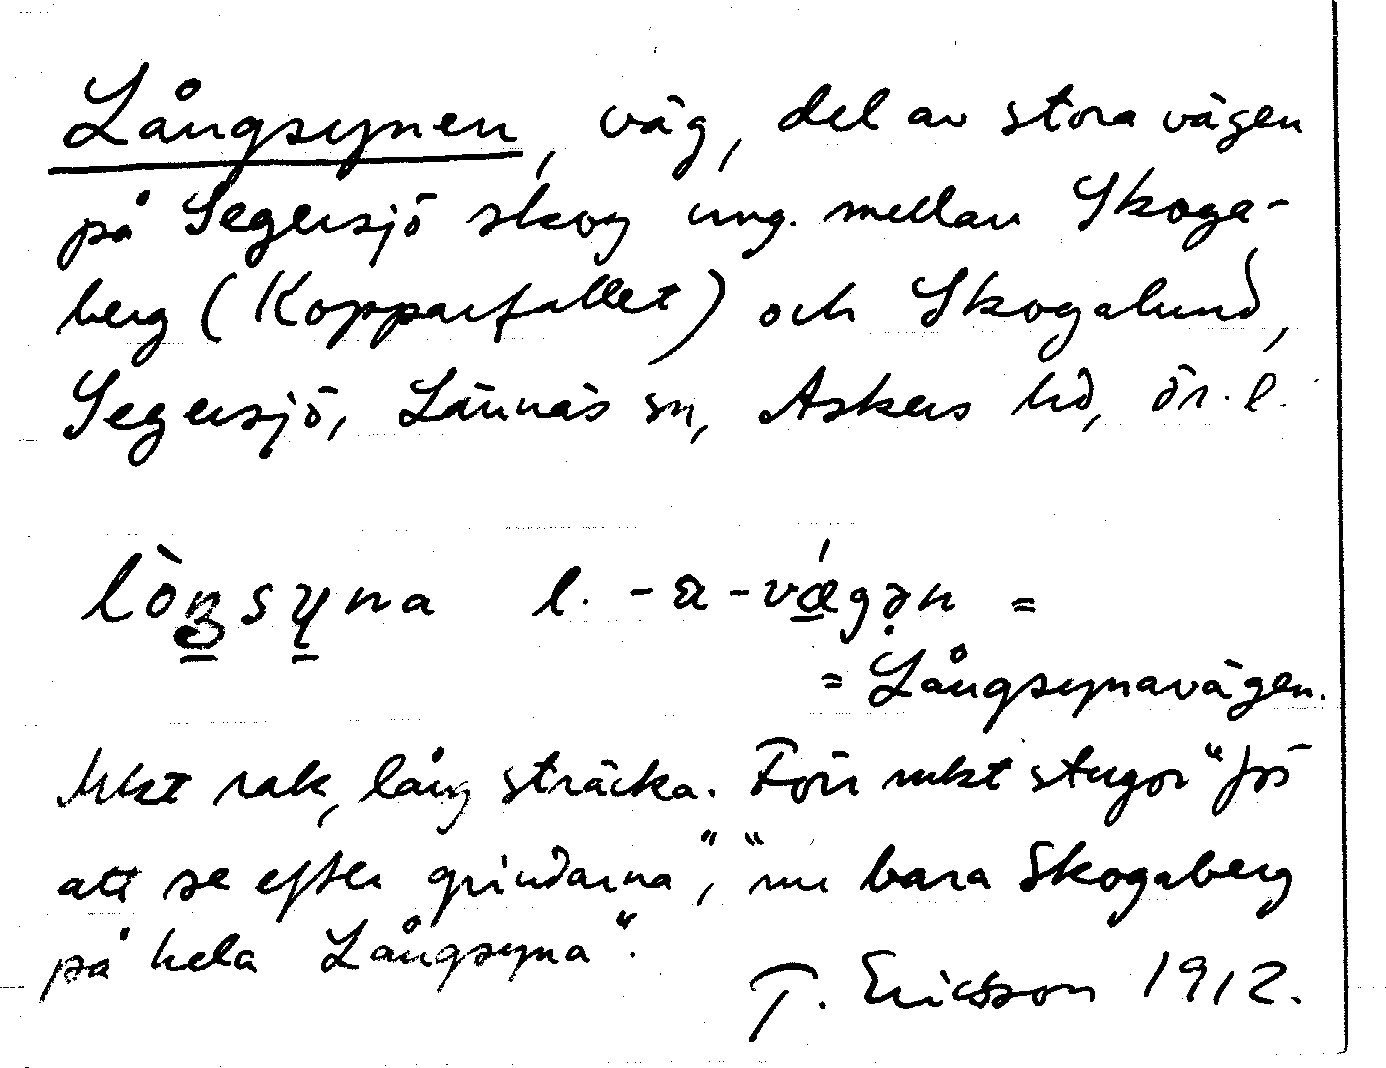 Långsynen, väg, del av stora vägen
på Segersjö skog ung. mellan Skoga-
berg (Kopparfallet) och Skogalund,
Segersjö, Lännäs sn, Askers hd, ör. l.
lòŋsyna l. -a-vǽgən =
= Långsynavägen.
Mkt rak, lång sträcka. Förr mkt stugor "för
att se efter grindarna", "nu bara Skogaberg
på hela Långsyna".
T. Ericsson 1912.